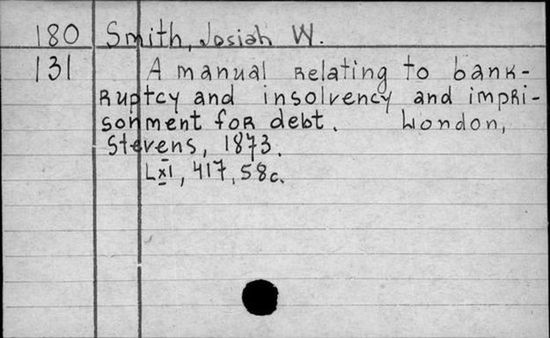 180 Smith, Josiah W.
131 A manual relating to bank-
ruptcy and insolvency and impri-
sonment for debt. London,
Stevens, 1873.
Lxi, 417, 58c.